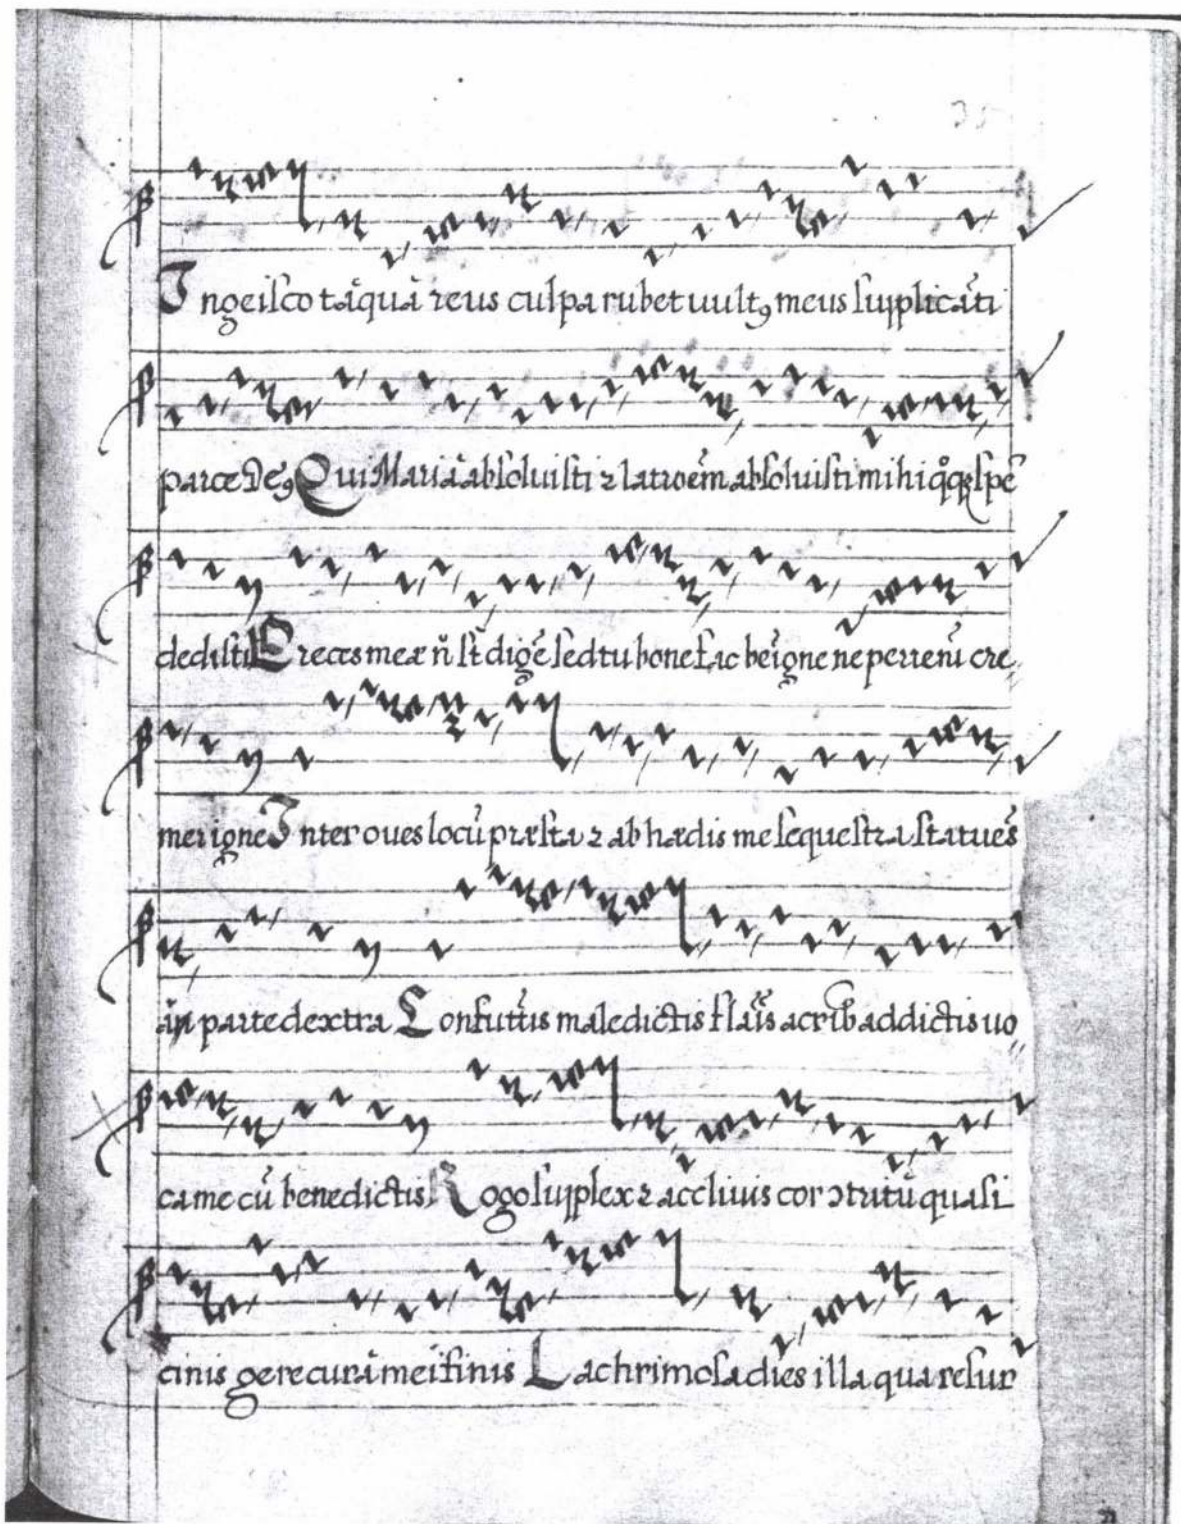 Ingeisco tāquā reus culpa rubet uultꝯ meus supplicāti
parce Deꝯ Qui Mariā absoluisti ⁊ latroēm absoluisti mihi q̊qꝫ spē
dedisti Preces meæ n̄ st̄ digē sed tu bone fac beigne ne perreni cre
mer igne Inter oues locū præsta ⁊ ab hædis me sequestra statuēs
in parte dextra Confutīs maledictis flāīs acrib addictis uo
ca me cū benedictis Rogo supplex ⁊ accliuis cor ↄtritū quasi
cinis gere curā mei finis Lachrimosa dies illa qua resur